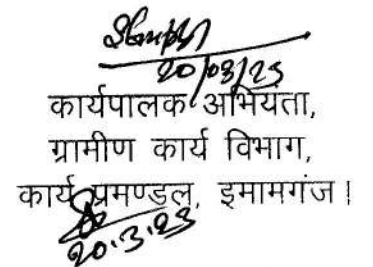 20/03/23
कार्यपालक अभियंता,
ग्रामीण कार्य विभाग,
कार्य प्रमण्डल, इमामगंज।
20.3.23